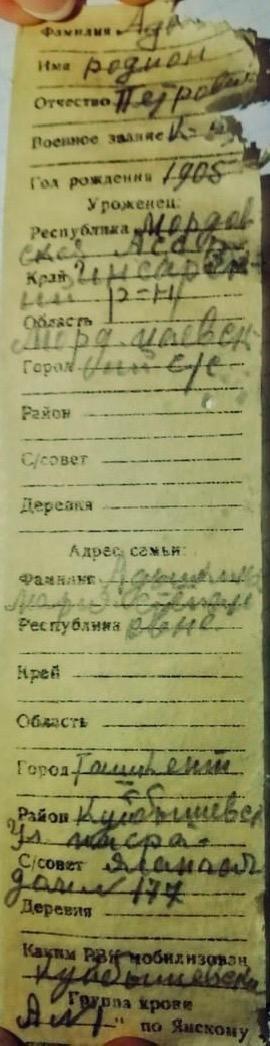 Фамилия Ады
Имя родион
Отчество Петрович
Военное звание к-ц
Год рождения 1905
Уроженец:
Республика Мордов
ская АССР
Край Инсарск
ий р-н
Область
Морд. паевск
Город кий с/с
Район
С/совет
Деревня
Адрес семьи:
Фамилия Адышкина
мария Степан
Республика овна
Край
Область
Город Ташкент
Район Куйбышевск
Ул
С/совет
дом № 177
Деревня
Каким РВК мобилизован
Куйбышевски
Группа крови
" по Янскому